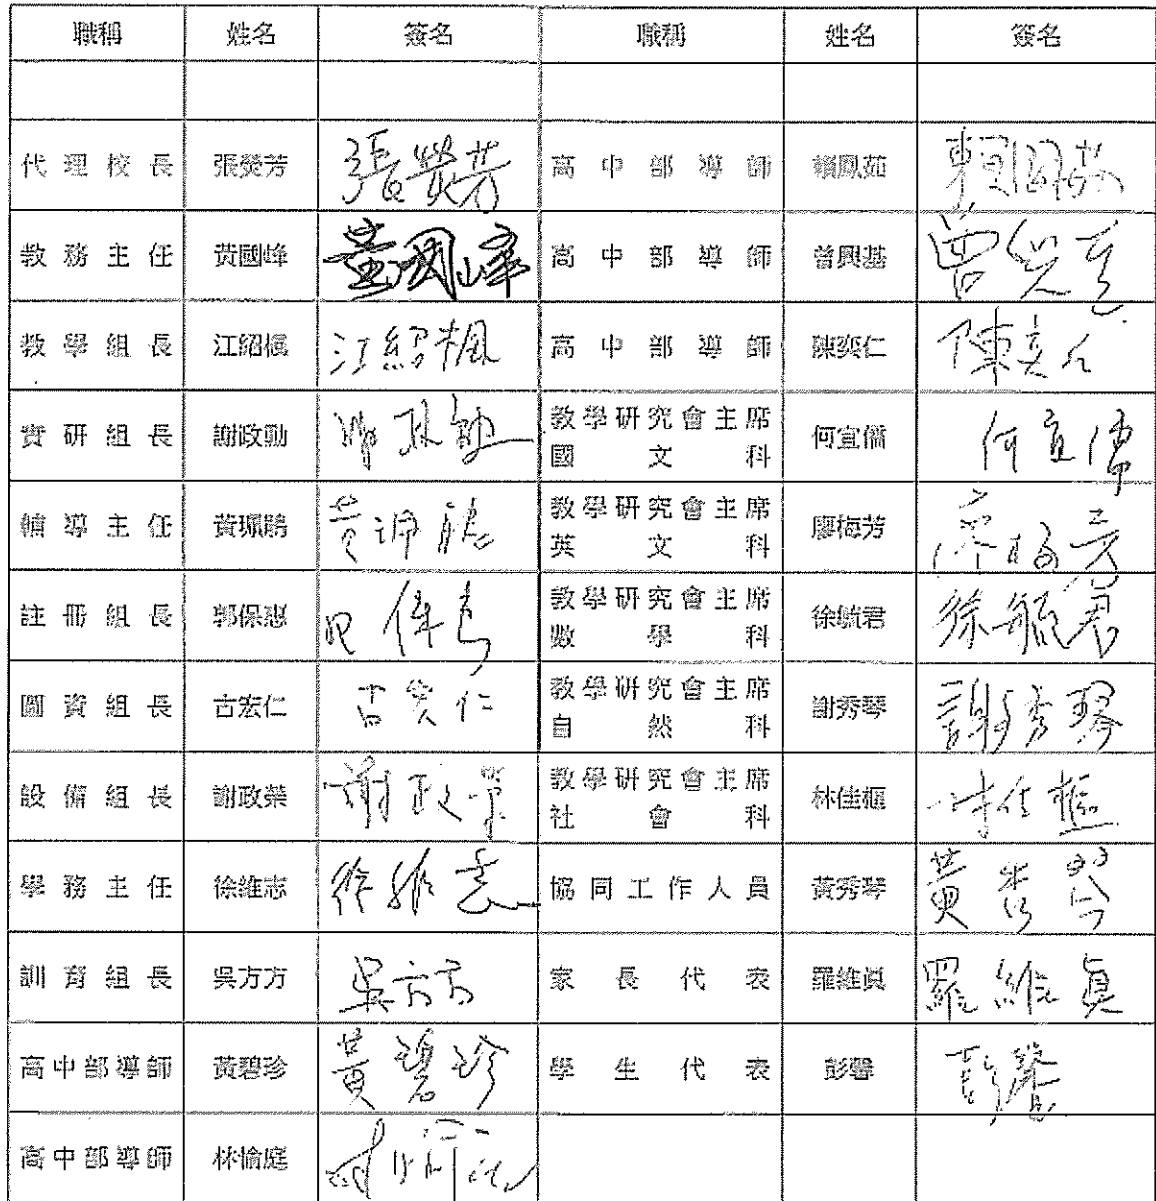 職稱 姓名 簽名 職稱 姓名 簽名
代理校長 張熒芳 張熒芳 高中部導師 賴鳳茹
教務主任 黃國峰 黃國峰 高中部導師 曾興基
教學組長 江紹楓 江紹楓 高中部導師 陳奕仁 陳奕仁
實研組長 謝政勳 教學研究會主席 國文科 何宜儒 何宜儒
輔導主任 黃珮鵑 教學研究會主席 英文科 廖梅芳 廖梅芳
註冊組長 郭保惠 教學研究會主席 數學科 徐毓君 徐毓君
圖資組長 古宏仁 古宏仁 教學研究會主席 自然科 謝秀琴 謝秀琴
設備組長 謝政榮 謝政榮 教學研究會主席 社會科 林佳樞 林佳樞
學務主任 徐維志 徐維志 協同工作人員 黃秀琴 黃秀琴
訓育組長 吳方方 吳方方 家長代表 羅維真 羅維真
高中部導師 黃碧珍 黃碧珍 學生代表 彭馨 彭馨
高中部導師 林愉庭